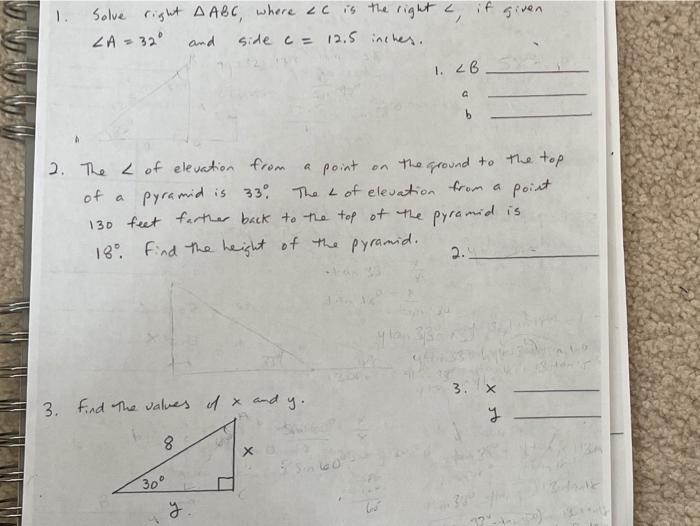 1. Solve right △ABC, where ∠C is the right ∠, if given
∠A = 32° and side c = 12.5 inches.
1. ∠B
a
b
2. The ∠ of elevation from a point on the ground to the top
of a pyramid is 33°. The ∠ of elevation from a point
130 feet farther back to the top of the pyramid is
18°. Find the height of the pyramid.
2.
3. Find the values of x and y.
3. x
y
8
x
30°
y